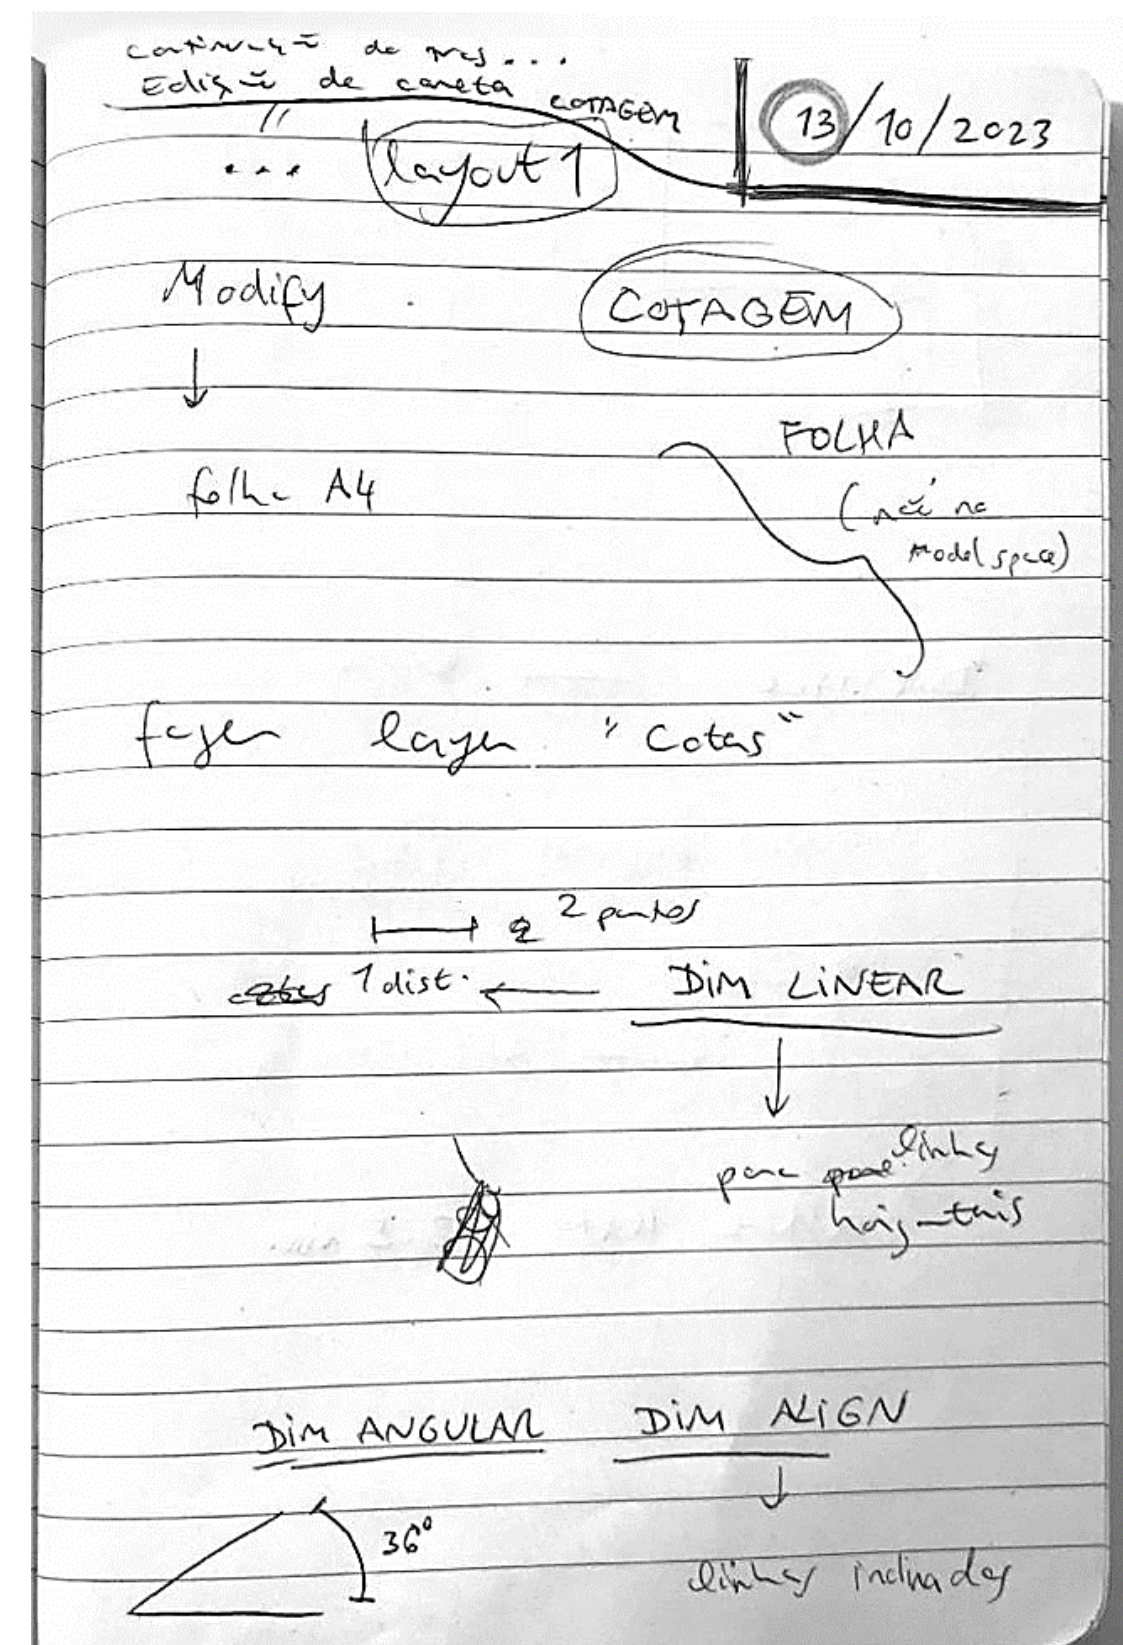 Continuação de
Edição de caneta COTAGEM
13/10/2023
... layout 1
Modify
COTAGEM
FOLHA
folha A4
(não na
Model space)
fazer layer "Cotas"
2 pontos
1 dist. ← DIM LINEAR
para linhas
horizontais
DIM ANGULAR DIM ALIGN
36°
linhas inclinadas